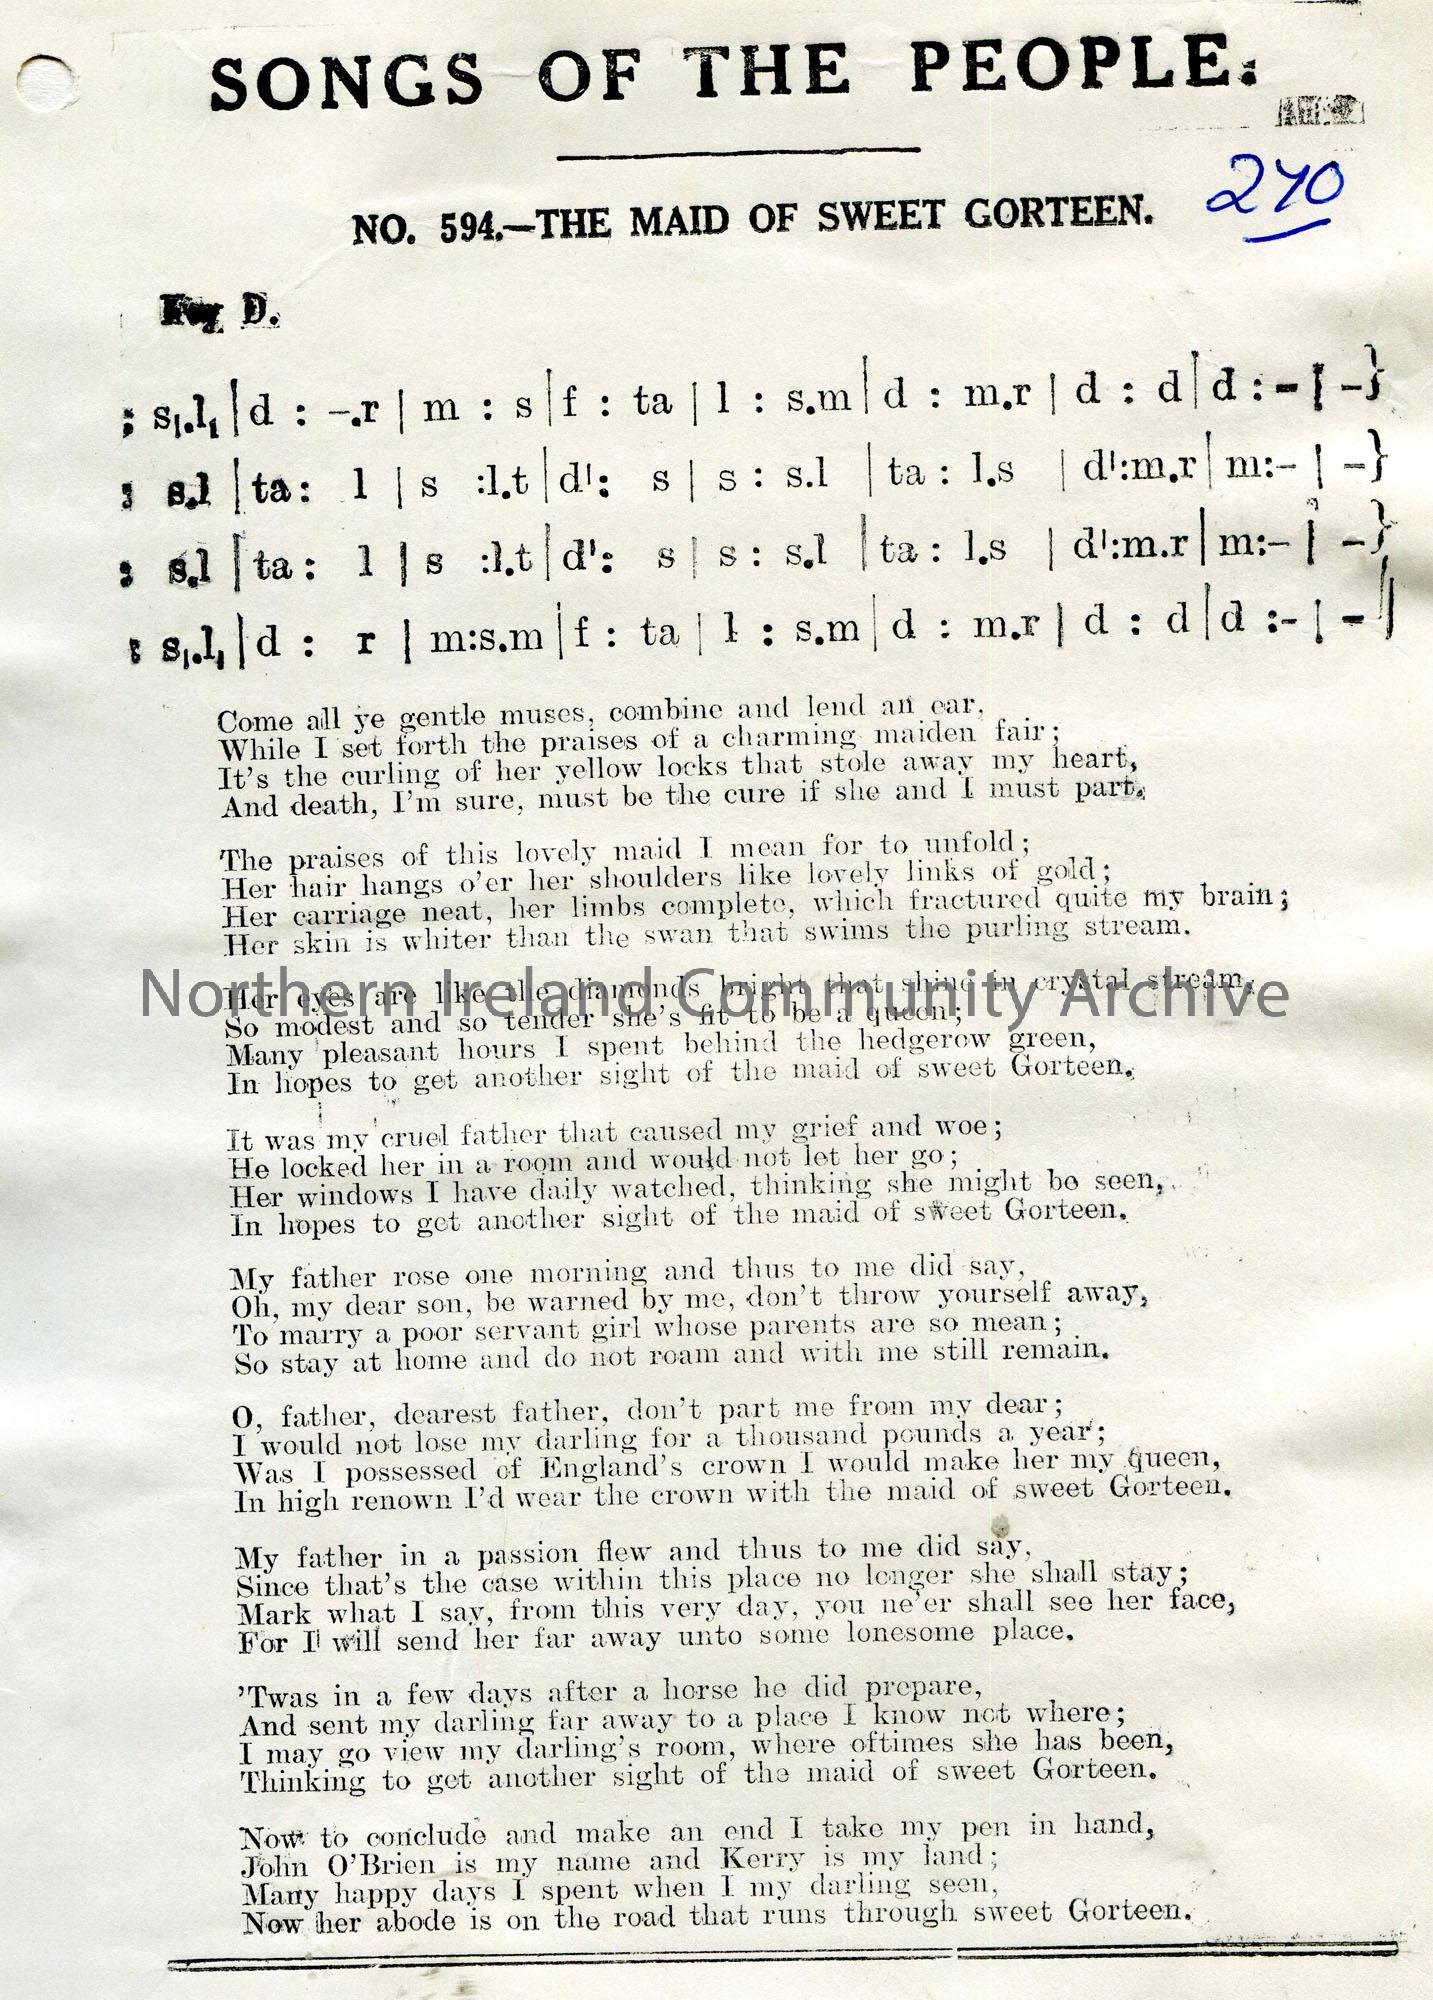 SONGS OF THE PEOPLE.
270
NO. 594.—THE MAID OF SWEET GORTEEN.
Key D.
: s₁.l₁ | d : –.r | m : s | f : ta | l : s.m | d : m.r | d : d | d : – | – }
: s.l | ta : l | s :l.t | d' : s | s : s.l | ta : l.s | d':m.r | m:– | – }
: s.l | ta : l | s :l.t | d' : s | s : s.l | ta : l.s | d':m.r | m:– | – }
: s₁.l₁ | d : r | m:s.m | f : ta | l : s.m | d : m.r | d : d | d :– | – ||
Come all ye gentle muses, combine and lend an ear,
While I set forth the praises of a charming maiden fair;
It's the curling of her yellow locks that stole away my heart,
And death, I'm sure, must be the cure if she and I must part.
The praises of this lovely maid I mean for to unfold;
Her hair hangs o'er her shoulders like lovely links of gold;
Her carriage neat, her limbs complete, which fractured quite my brain;
Her skin is whiter than the swan that swims the purling stream.
Her eyes are like the diamonds bright that shine in crystal stream,
Northern Ireland Community Archive
So modest and so tender she's fit to be a queen;
Many pleasant hours I spent behind the hedgerow green,
In hopes to get another sight of the maid of sweet Gorteen.
It was my cruel father that caused my grief and woe;
He locked her in a room and would not let her go;
Her windows I have daily watched, thinking she might be seen,
In hopes to get another sight of the maid of sweet Gorteen.
My father rose one morning and thus to me did say,
Oh, my dear son, be warned by me, don't throw yourself away,
To marry a poor servant girl whose parents are so mean;
So stay at home and do not roam and with me still remain.
O, father, dearest father, don't part me from my dear;
I would not lose my darling for a thousand pounds a year;
Was I possessed of England's crown I would make her my queen,
In high renown I'd wear the crown with the maid of sweet Gorteen.
My father in a passion flew and thus to me did say,
Since that's the case within this place no longer she shall stay;
Mark what I say, from this very day, you ne'er shall see her face,
For I will send her far away unto some lonesome place.
'Twas in a few days after a horse he did prepare,
And sent my darling far away to a place I know not where;
I may go view my darling's room, where oftimes she has been,
Thinking to get another sight of the maid of sweet Gorteen.
Now to conclude and make an end I take my pen in hand,
John O'Brien is my name and Kerry is my land;
Many happy days I spent when I my darling seen,
Now her abode is on the road that runs through sweet Gorteen.